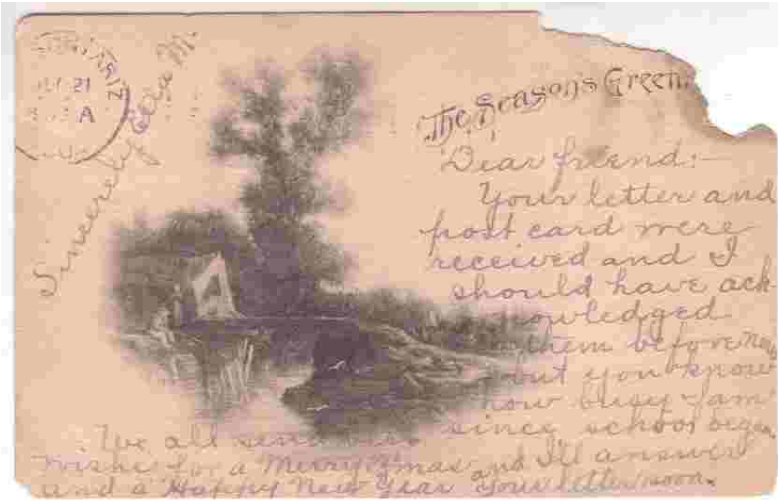 ARIZ
21
A
The Season's Greet
Dear friend:-
Your letter and
post card were
received and I
should have ack
nowledged
them before now
but you know
how busy I am
since school began,
and I'll answer
your letter soon.
We all send
wishes for a Merry X'mas
and a Happy New Year
Sincerely Ella M.